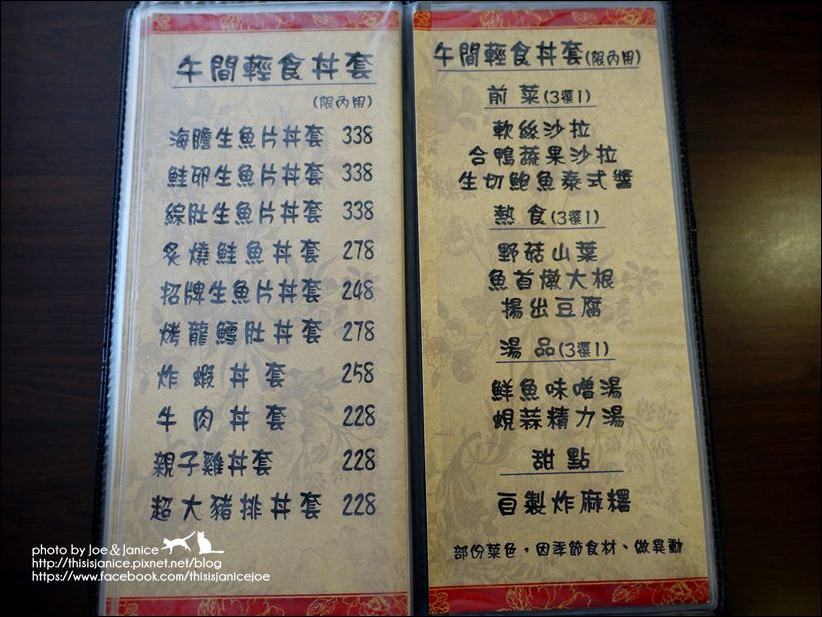 午間輕食丼套
(限內用)
海膽生魚片丼套 338
鮭卵生魚片丼套 338
綜肚生魚片丼套 338
炙燒鮭魚丼套 278
招牌生魚片丼套 248
烤龍鱈肚丼套 278
炸蝦丼套 258
牛肉丼套 228
親子雞丼套 228
超大豬排丼套 228
午間輕食丼套(限內用)
前菜(3選1)
軟絲沙拉
合鴨蔬果沙拉
生切鮑魚泰式醬
熱食(3選1)
野菇山葉
魚首燉大根
揚出豆腐
湯品(3選1)
鮮魚味噌湯
蜆蒜精力湯
甜點
自製炸麻糬
部份菜色，因季節食材、做異動
photo by Joe & Janice
http://thisisjanice.pixnet.net/blog
https://www.facebook.com/thisisjanicejoe